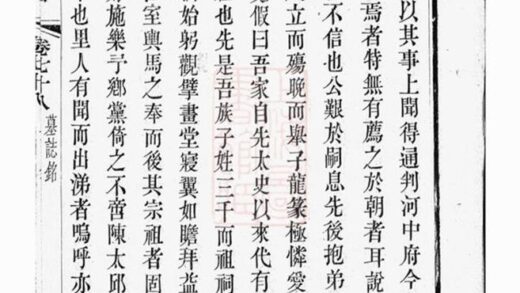 以其事上聞得通判河中府今
焉者特無有薦之於朝者耳說
不信也公艱於嗣息先後抱弟
立而殤晚而舉子龍篆極憐愛
假曰吾家自先太史以來代有
也先是吾族子姓三千而祖祠
始躬觀擘畫堂寢翼如瞻拜益
室輿馬之奉而後其宗祖者固
施樂予鄉黨倚之不啻陳太邱
也里人有聞而出涕者嗚呼亦
卷七十八
墓誌銘